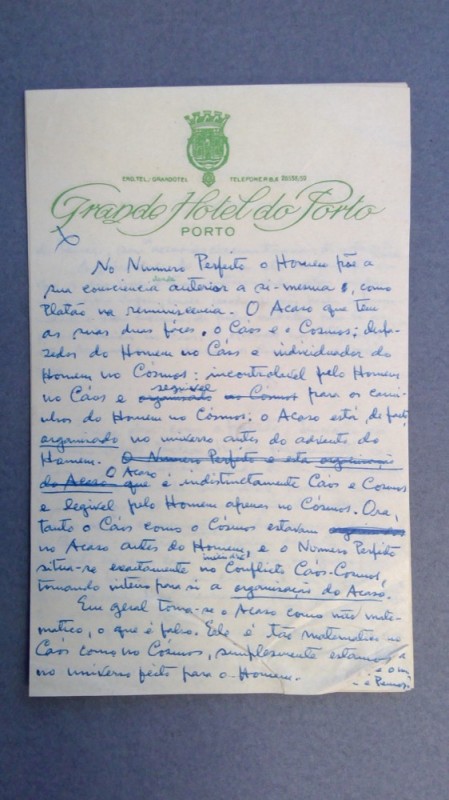 END. TEL.: GRANDOTEL TELEFONE P.B.X
Grande Hotel do Porto
PORTO
No Numero Perfeito o Homem põe a
sua consciencia anterior a si-mesma, como
Platão na reminiscencia. O Acaso que tem
as suas duas fáces, o Cáos e o Cosmos;
do Homem no Cáos e individuador do
Homem no Cósmos: incontrolavel pelo Homem
no Cáos e legivel para os cami-
nhos do Homem no Cósmos; o Acaso está, de facto,
organizado no universo antes do advento do
Homem. O Numero Perfeito e esta organização
do Acaso O Acaso que é indistinctamente Cáos e Cosmos
e legivel pelo Homem apenas no Cósmos. Ora,
tanto o Cáos como o Cósmos estavam
no Acaso antes do Homem, e o Número Perfeito
situa-se exactamente no Conflicto Cáos-Cosmos,
tomando inteiro para si a organização do Acaso.
Em geral toma-se o Acaso como não mate-
matico, o que é falso. Ele é tão matematico no
Cáos como no Cósmos, simplesmente estamos
no universo feito para o Homem.